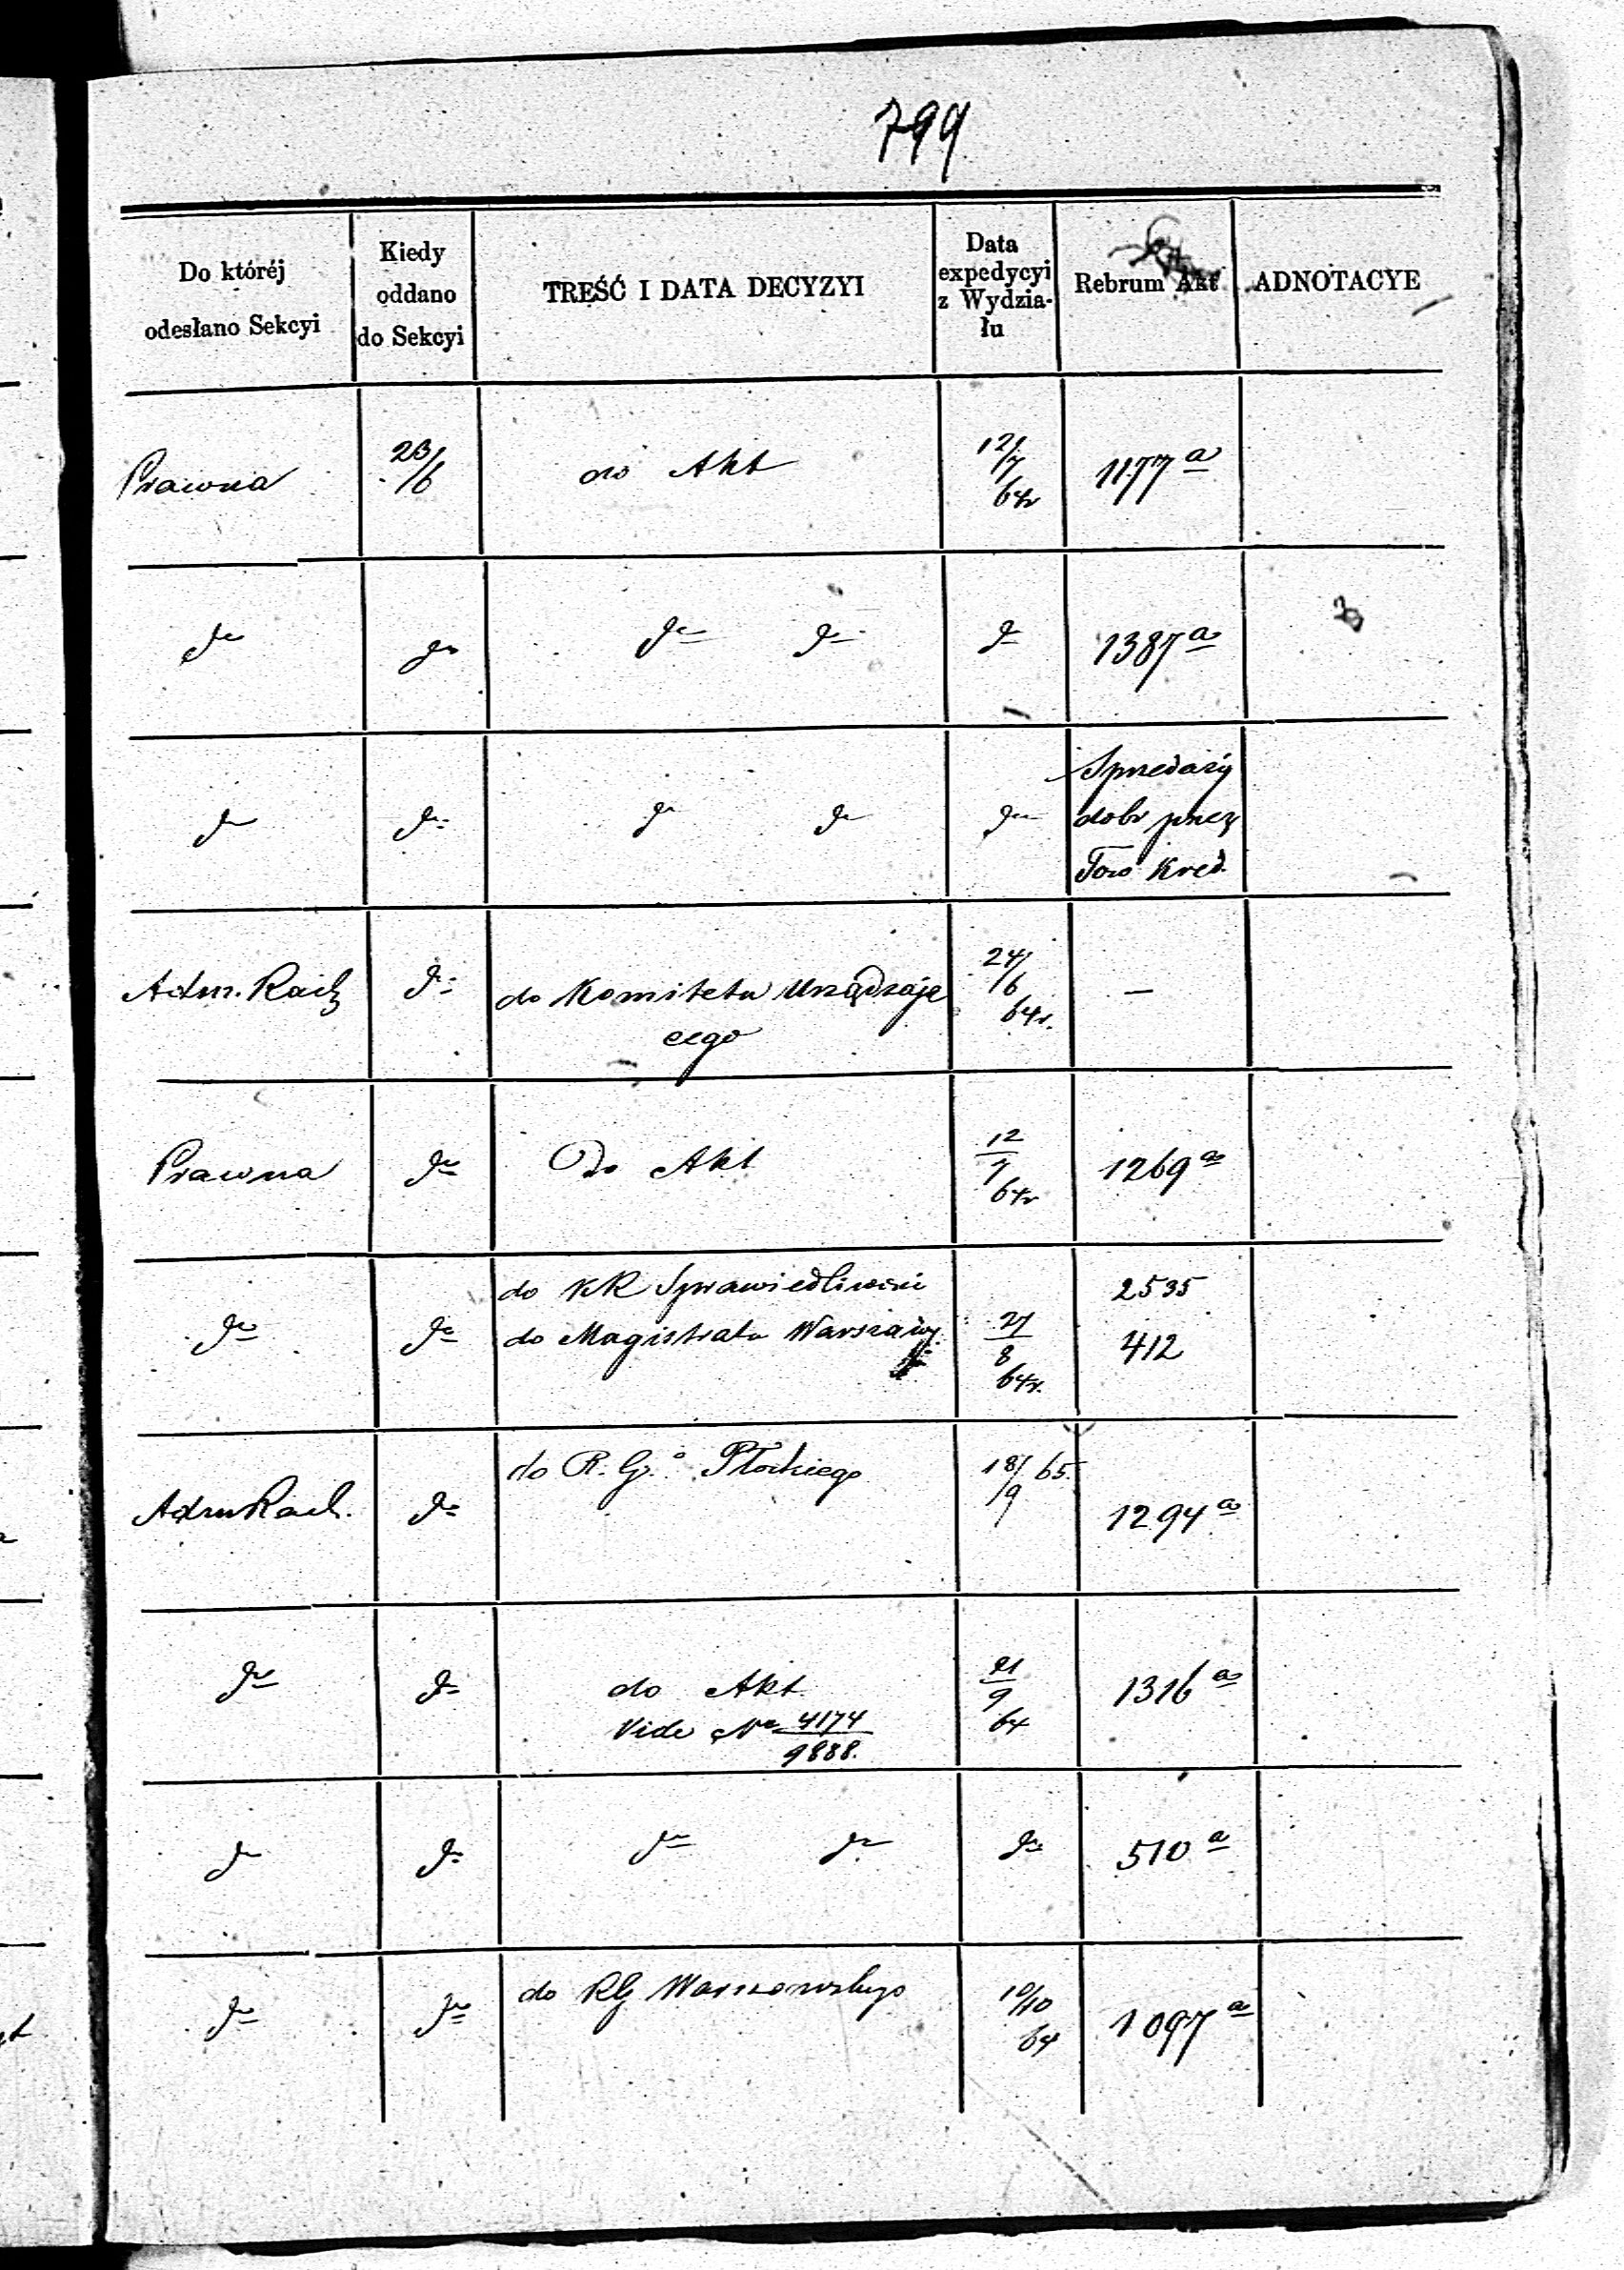 799
Do któréj odesłano Sekcyi
Kiedy oddano do Sekcyi
TREŚĆ I DATA DECYZYI
Data expedycyi z Wydzia- łu
Rebrum Akt
ADNOTACYE
Prawna 23/6 do Akt 12/7 64r 1177 a
do do do do do 1387 a
do do do do do Sprzedaży
dobr przez
Tow Kred.
Adm. Rach do do Komitetu Urządzają 24/6 64r. —
cego
Prawna do Do Akt 12/7 64r 1269 a
do KR Sprawiedliwości 2535
do do do Magistratu Warszawy 27/8 64r. 412
do R. G. o Płockiego 18/9 65.
Adm Rach. do 1294 a
do do do Akt 21/9 64 1316 a
Vide No 4174/9888.
do do do do do 510 a
do do do RG Warszawskiego 10/10 64 1097 a